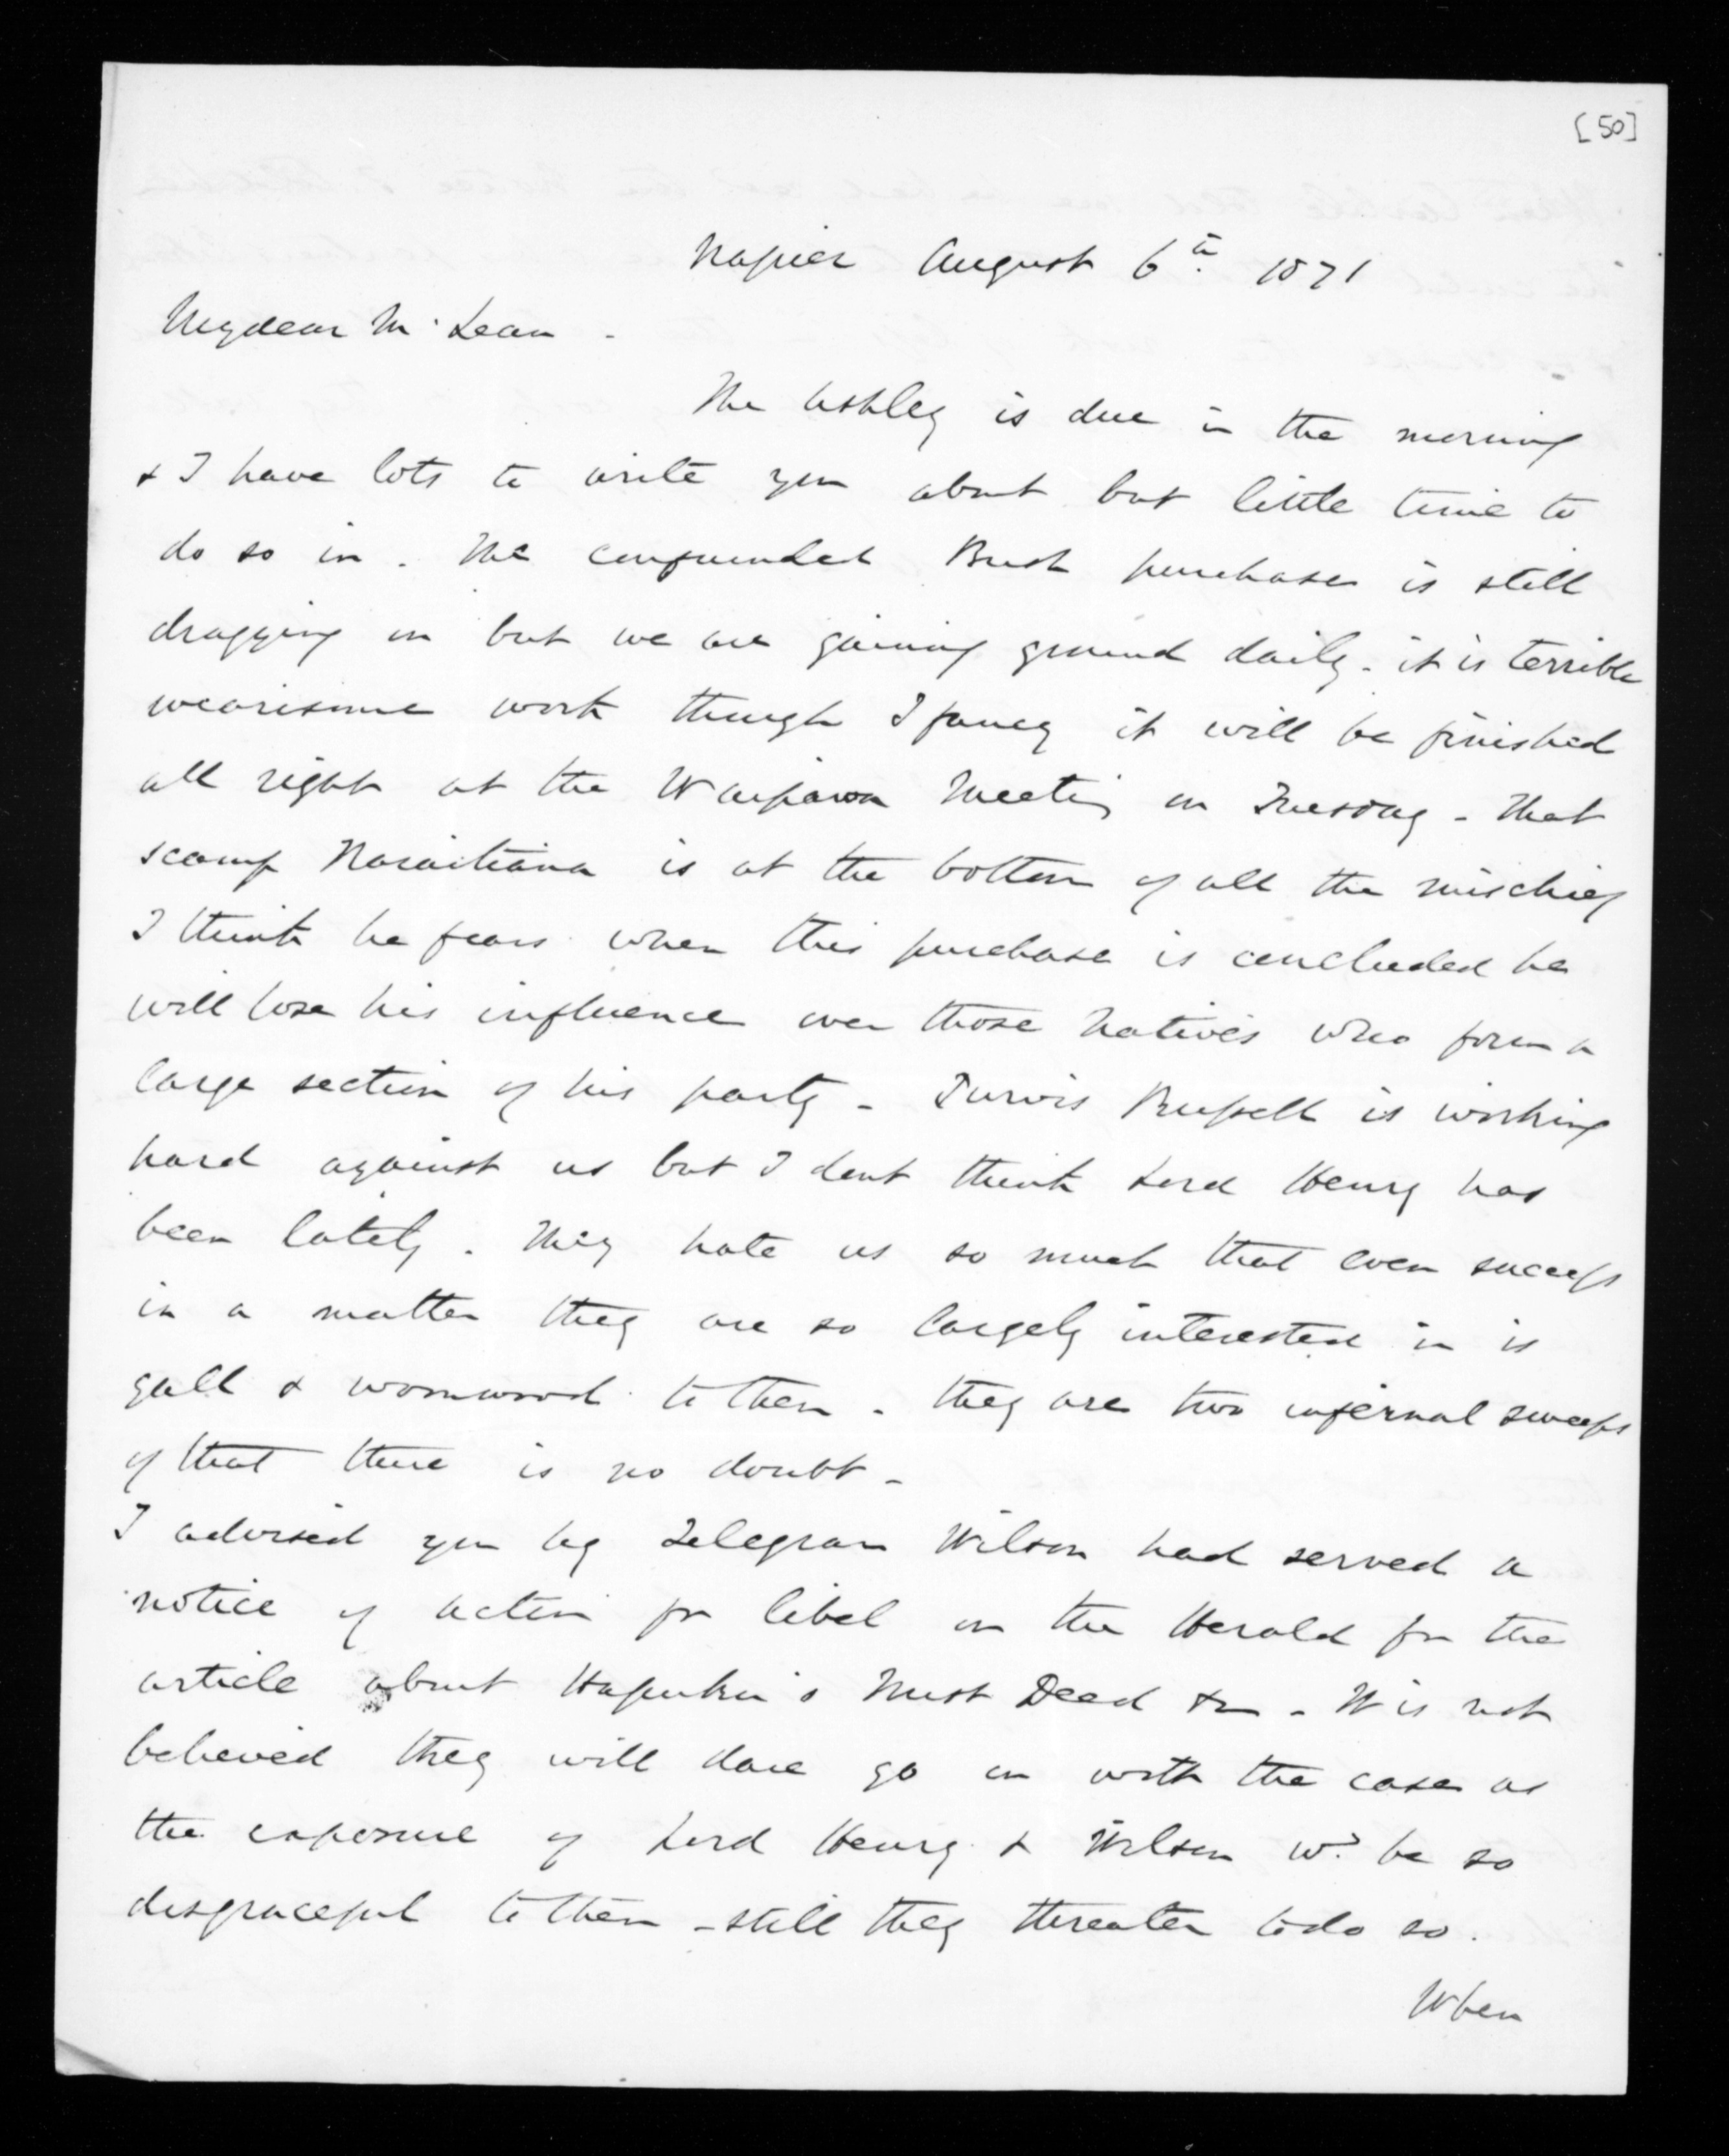 [50]
Napier August 6th 1871
My dear McLean -
The Ashley is due in the morning
& I have lots to write you about but little time to
do so in. The confounded Bush purchase is still
dragging on but we are gaining ground daily - it is terrible
wearisome work though I fancy it will be finished
all right at the Waipawa Meeting on Tuesday - That
scamp Karaitiana is at the bottom of all the mischief
I think he fears when this purchase is concluded he
will lose his influence over those Natives who form a
large section of his party - Purvis Russell is working
hard against us but I dont think Lord Henry has
been lately. They hate us so much that even success
in a matter they are so largely interested in is
gall & wormwood to them - they are two infernal sweeps
of that there is no doubt -
I advised you by Telegram Wilson had served a
notice of action for libel on the Herald for the
article about Hapuku's Trust Deed &c - It is not
believed they will dare go on with the case as
the exposure of Lord Henry & Wilson wd be so
disgraceful to them - still they threaten to do so.
When